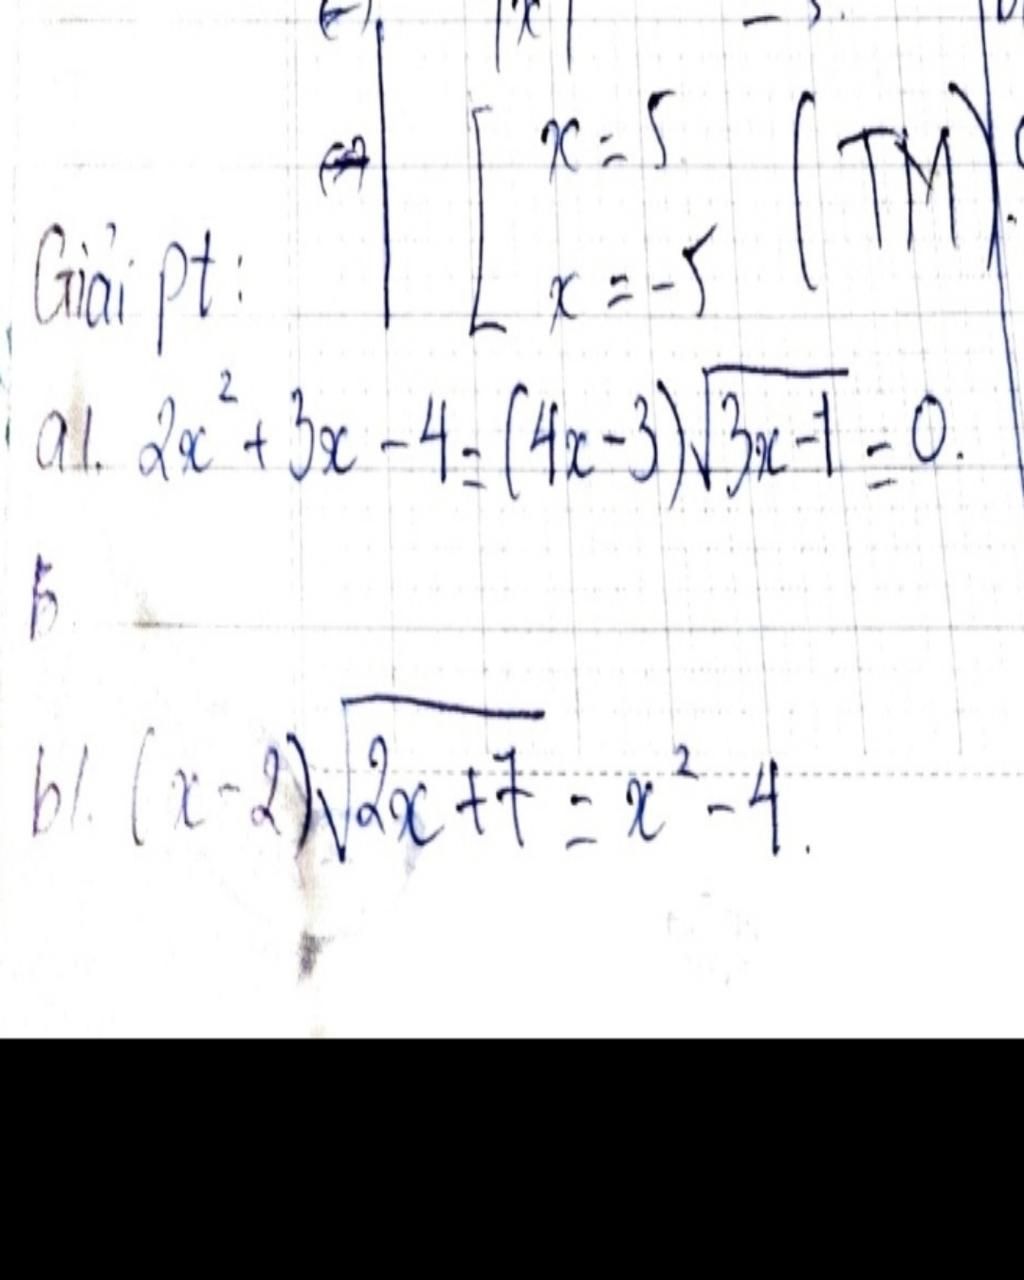 (=)
|x|
(=) [ x = 5 (TM).
x = -5
Giải pt:
a/. 2x² + 3x - 4 = (4x - 3)√(3x - 1) = 0.
b
b/. (x - 2)√(2x + 7) = x² - 4.